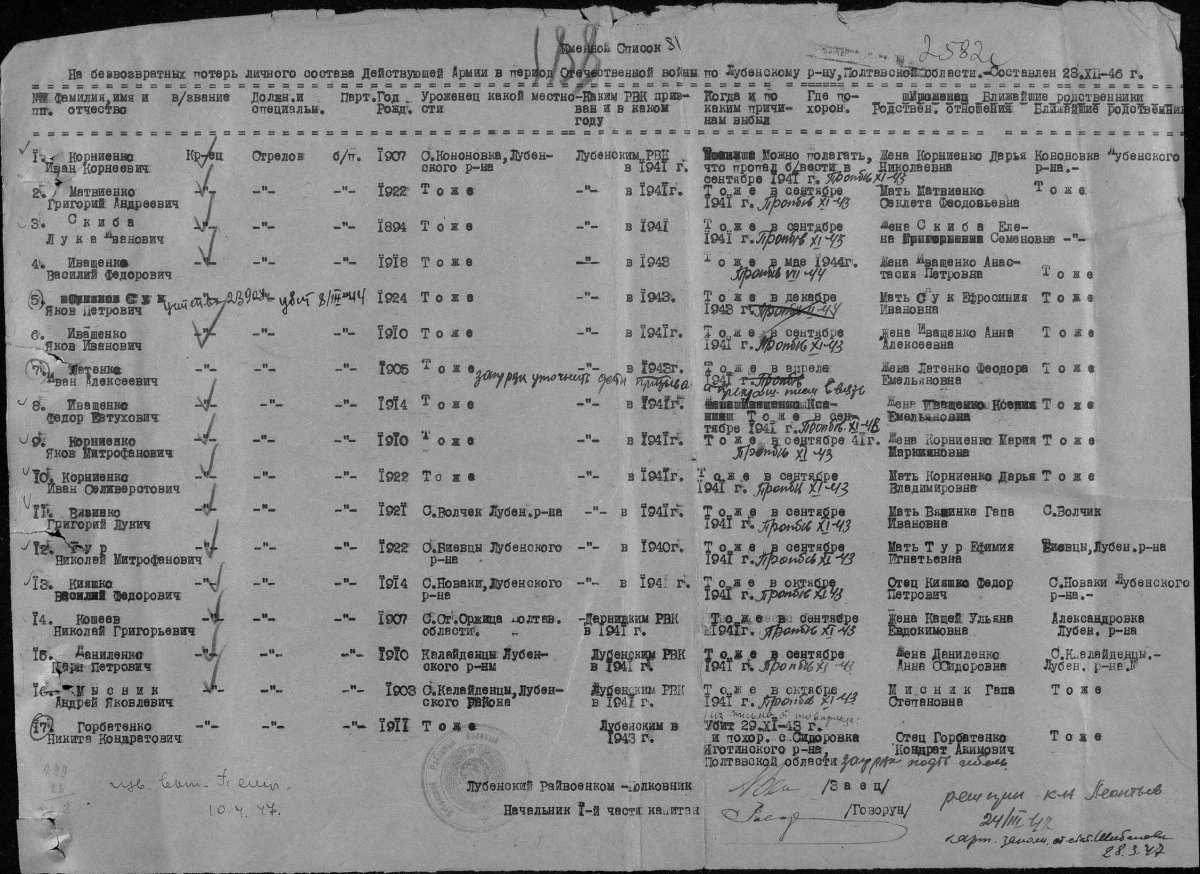 188
Именной Список 81
2582с
На безвозвратных потерь личного состава Действующей Армии в период Отечественной войны по Лубенскому р-ну,Полтавской области.-Составлен 28.XII-46 г.
№№ Фамилия,имя и в/звание Должн.и Парт. Год Уроженец какой местно- Каким РВК приз- Когда и по Где по- Ближайшие родственники
пп. отчество специальн. Рожд. сти ван и в каком каким причи- хорон. Родствен. отношения Ближайшие родственник
году нам выбыл
1. Корниенко Кр-ец Стрелок б/п. 1907 С.Кононовка,Лубен- Лубенским РВК Можно полагать, Жена Корниенко Дарья Кононовка Лубенского
Иван Корнеевич ского р-на в 1941 г. что пропал б/вести в Николаевна р-на.-
сентябре 1941 г. Проп б/в XI-43
2. Матвиенко -"- -"- -"- 1922 Тоже -"- в 1941г. Тоже в сентябре Мать Матвиенко Тоже
Григорий Андреевич 1941 г. Проп б/в XI-43 Секлета Феодовьевна
3. Скиба -"- -"- -"- 1894 Тоже -"- в 1941 Тоже в сентябре Жена Скиба Еле-
Лука Иванович 1941 г. Проп б/в XI-43 на Семеновна -"-
4. Иващенко -"- -"- -"- 1918 Тоже -"- в 1943 Тоже в мае 1944г. Жена Иващенко Анас-
Василий Федорович Проп б/в VII-44 тасия Петровна Тоже
5. Сук 239 убит 8/III-44 1924 Тоже -"- в 1943. Тоже в декабре Мать Сук Ефросиния Тоже
Яков Петрович 1943 г. Ивановна
6. Иващенко -"- -"- -"- 1910 Тоже -"- в 1941г. Тоже в сентябре Жена Иващенко Анна Тоже
Яков Иванович 1941 г. Проп б/в XI-43 Алексеевна
7. Латенко -"- -"- -"- 1905 Тоже -"- в 1943г. Тоже в апреле Жена Латенко Феодора Тоже
Иван Алексеевич уточнить дату призыва 1941 г. Емельяновна
и прекращ. писем связь
8. Иващенко -"- -"- -"- 1914 Тоже -"- в 1941г. Жена Иващенко Ксения Тоже
Федор Евтухович Тоже в сен- Емельяновна
тябре 1941 г. Проп б/в XI-43
9. Корниенко -"- -"- -"- 1910 Тоже -"- в 1941г. Тоже в сентябре 41г. Жена Корниенко Мария Тоже
Яков Митрофанович Проп б/в XI-43 Маркияновна
10. Корниенко -"- -"- -"- 1922 Тоже -"- в 1941г. Тоже в сентябре Мать Корниенко Дарья Тоже
Иван Селиверстович 1941 г. Проп б/в XI-43 Владимировна
11. -"- -"- -"- 1921 С.Волчек Лубен.р-на -"- в 1941г. Тоже в сентябре Мать Гапа С.Волчик
Григорий Лукич 1941 г. Проп б/в XI-43 Ивановна
12. Тур -"- -"- -"- 1922 С.Биевцы Лубенского -"- в 1940г. Тоже в сентябре Мать Тур Ефимия Биевцы,Лубен.р-на
Николай Митрофанович р-на 1941 г. Проп б/в XI-43 Игнатьевна
13. Кияшко -"- -"- -"- 1914 С.Новаки,Лубенского -"- в 1941 г. Тоже в октябре Отец Кияшко Федор С.Новаки Лубенского
Василий Федорович р-на 1941 г. Проп б/в XI-43 Петрович р-на.-
14. Кошеев -"- -"- -"- 1907 С.Ст.Оржица Полтав. -Дарницким РВК Тоже в сентябре Жена Кащей Ульяна Александровка
Николай Григорьевич области. в 1941 г. 1941г. Проп б/в XI-43 Евдокимовна Лубен. р-на
15. Даниленко -"- -"- -"- 1910 Калайденцы Лубен- Лубенским РВК Тоже в сентябре Жена Даниленко С.Калайденцы.-
Петрович ского р-ны в 1941 г. 1941 г. Проп б/в XI-43 Анна Сидоровна Лубен. р-на.
16. Мысник -"- -"- -"- 1903 С.Калайденцы,Лубен- Лубенским РВК Тоже в октябре Мисник Гапа Тоже
Андрей Яковлевич ского района в 1941 г. 1941 г. Проп б/в XI-43 Степановна
из письма товарища:
17. Горбатенко -"- -"- -"- 1911 Тоже Лубенским в Убит 29.XI-43 г.
Никита Кондратович 1943 г. и похор. с.Сидоровка Отец Горбатенко Тоже
Яготинского р-на, Кондрат Акимович
Полтавской области гибель
Лубенский Райвоенком -Полковник /Заец/
Начальник 1-й части капитан /Говорун/
10.4.47.
Леонтьев
24/III 47
28.3.47